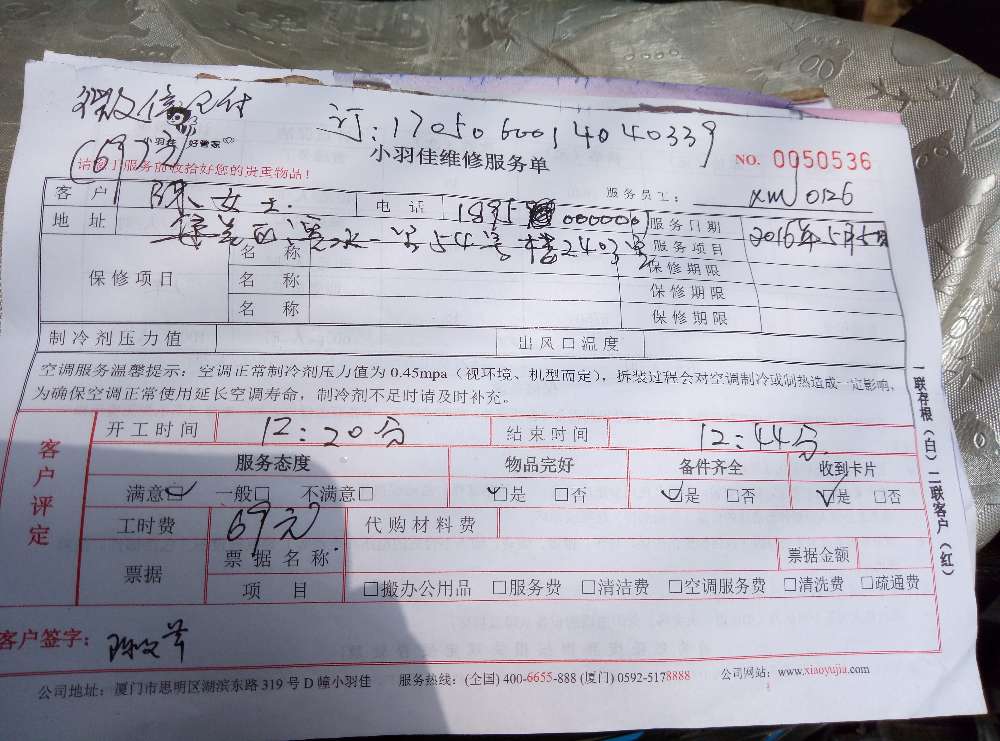 微信支付
订：170506001404033​9
(69元)
小羽佳 好管家
小羽佳维修服务单
NO. 0050536
请您于服务前收拾好您的贵重物品！
服务员工： xm0126
客 户 陈女士 电 话 服务日期 2016年5月5日
地 址 54号楼2403室 服务项目
保修项目 名 称 保修期限
名 称 保修期限
名 称 保修期限
制冷剂压力值 出风口温度
空调服务温馨提示：空调正常制冷剂压力值为 0.45mpa（视环境、机型而定），拆装过程会对空调制冷或制热造成一定影响，
为确保空调正常使用延长空调寿命，制冷剂不足时请及时补充。
一联存根（白）二联客户（红）
客户评定
开工时间 12:20分 结束时间 12:44分
服务态度 物品完好 备件齐全 收到卡片
满意☑ 一般□ 不满意□ ☑是 □否 ☑是 □否 ☑是 □否
工时费 69元 代购材料费
票据 票据名称 票据金额
项 目 □搬办公用品 □服务费 □清洁费 □空调服务费 □清洗费 □疏通费
客户签字：
公司地址：厦门市思明区湖滨东路 319 号 D 幢小羽佳 服务热线：(全国) 400-6655-888 (厦门) 0592-5178888 公司网站：www.xiaoyujia.com